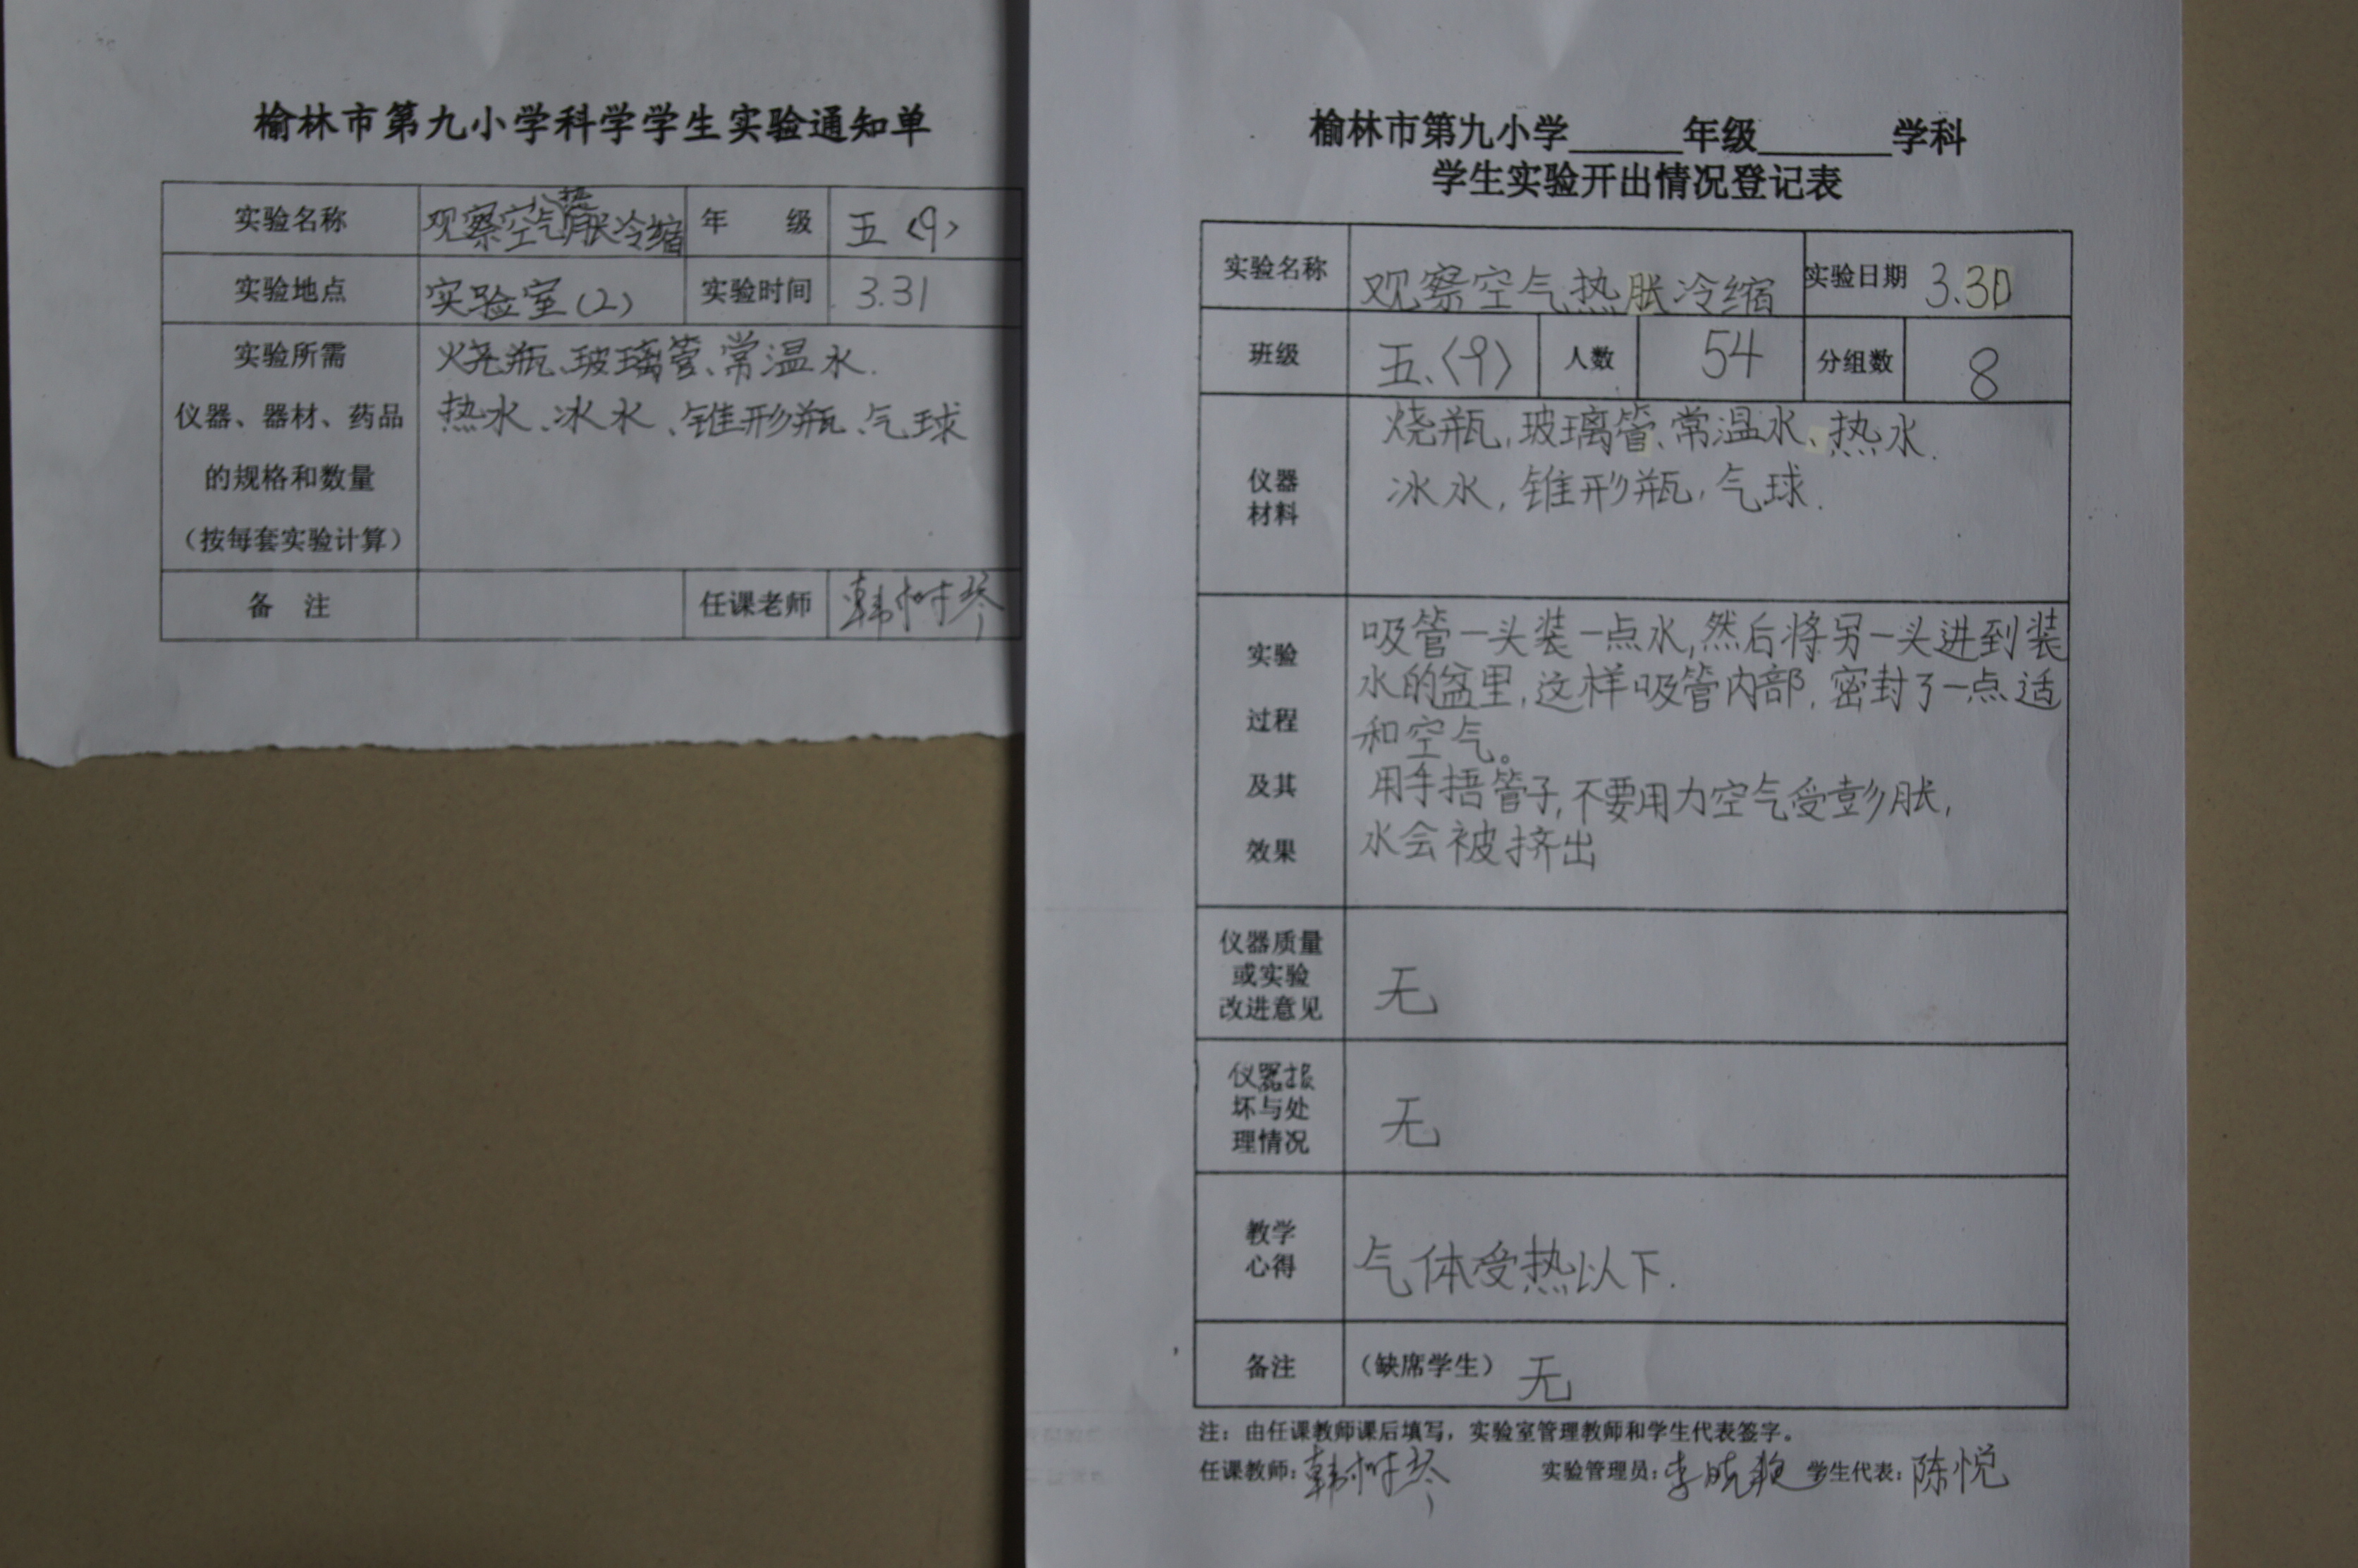 榆林市第九小学科学学生实验通知单
实验名称 观察空气热胀冷缩 年 级 五〈9〉
实验地点 实验室(2) 实验时间 3.31
实验所需 烧瓶、玻璃管、常温水.
仪器、器材、药品 热水、冰水、锥形瓶、气球
的规格和数量
（按每套实验计算）
备 注 任课老师 韩树琴
榆林市第九小学______年级_______学科
学生实验开出情况登记表
实验名称 观察空气热胀冷缩 实验日期 3.30
班级 五、〈9〉 人数 54 分组数 8
烧瓶,玻璃管、常温水、热水.
仪器 冰水,锥形瓶,气球.
材料
吸管一头装一点水,然后将另一头进到装
实验 水的盆里,这样吸管内部,密封了一点适
过程 和空气。
及其 用手捂管子,不要用力空气受膨胀,
效果 水会被挤出
仪器质量
或实验 无
改进意见
仪器损
坏与处 无
理情况
教学
心得 气体受热以下.
备注 （缺席学生） 无
注：由任课教师课后填写，实验室管理教师和学生代表签字。
任课教师：韩树琴 实验管理员：李晓艳 学生代表：陈悦